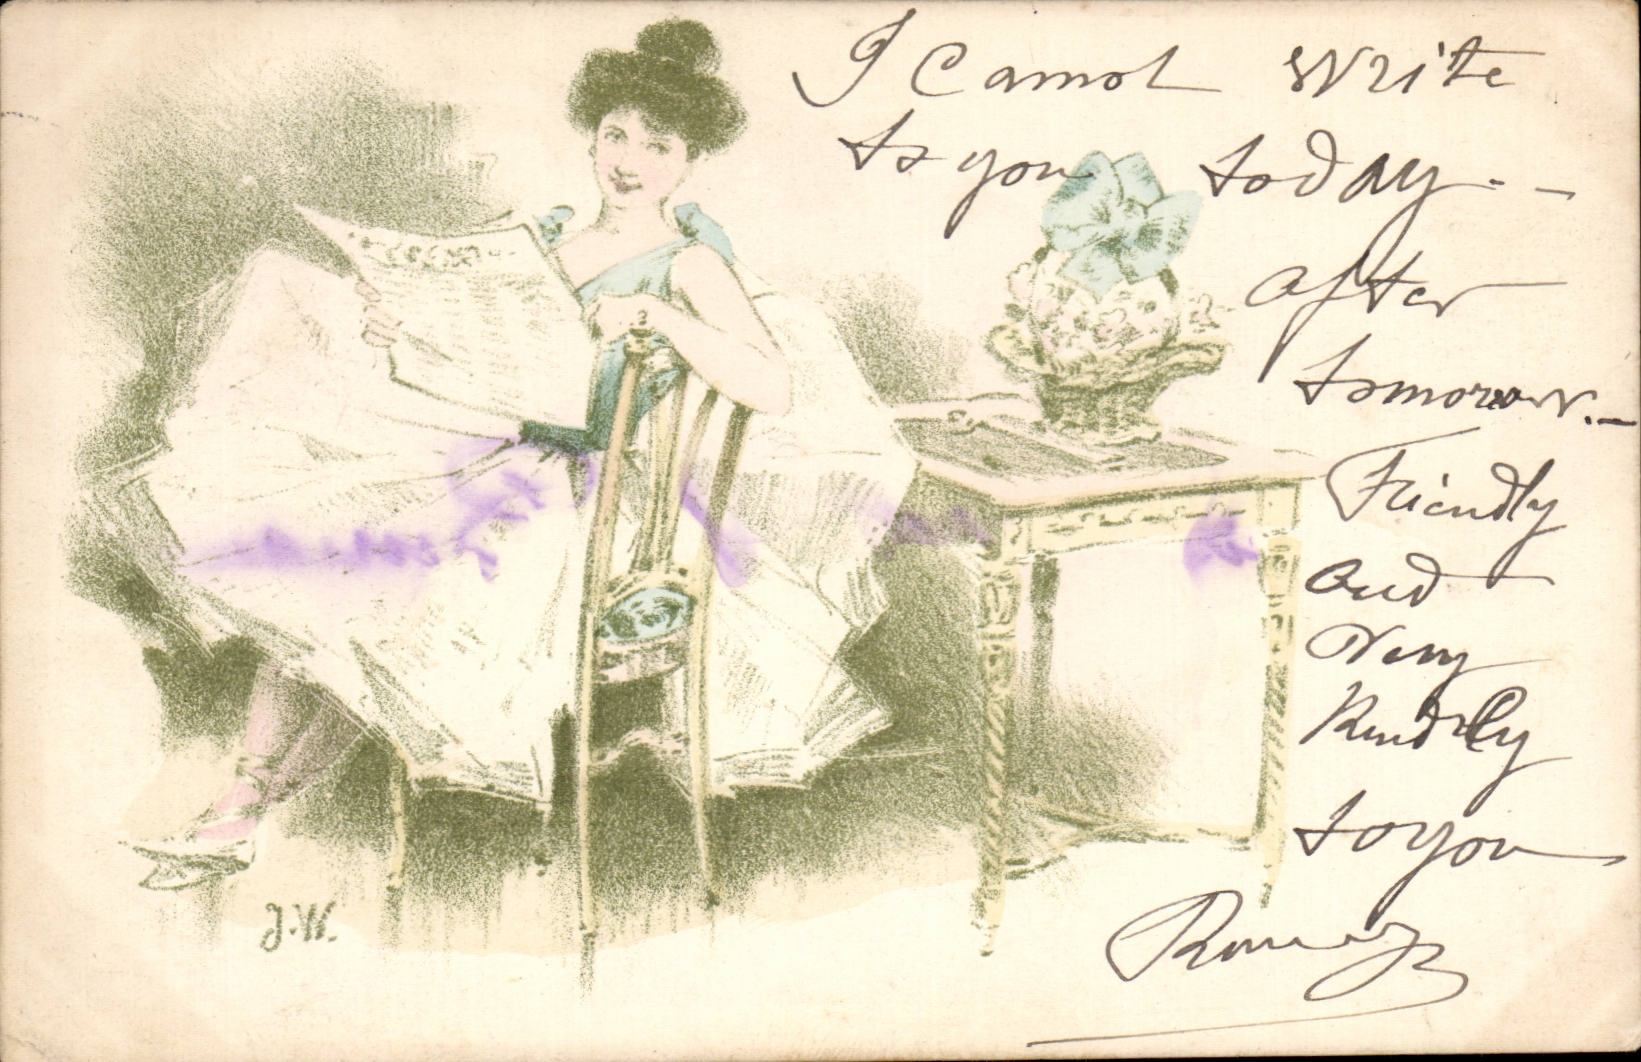 I Cannot Write
to you today - -
after
tomorrow. -
Friendly
and
Very
Kindly
to you
J.W.